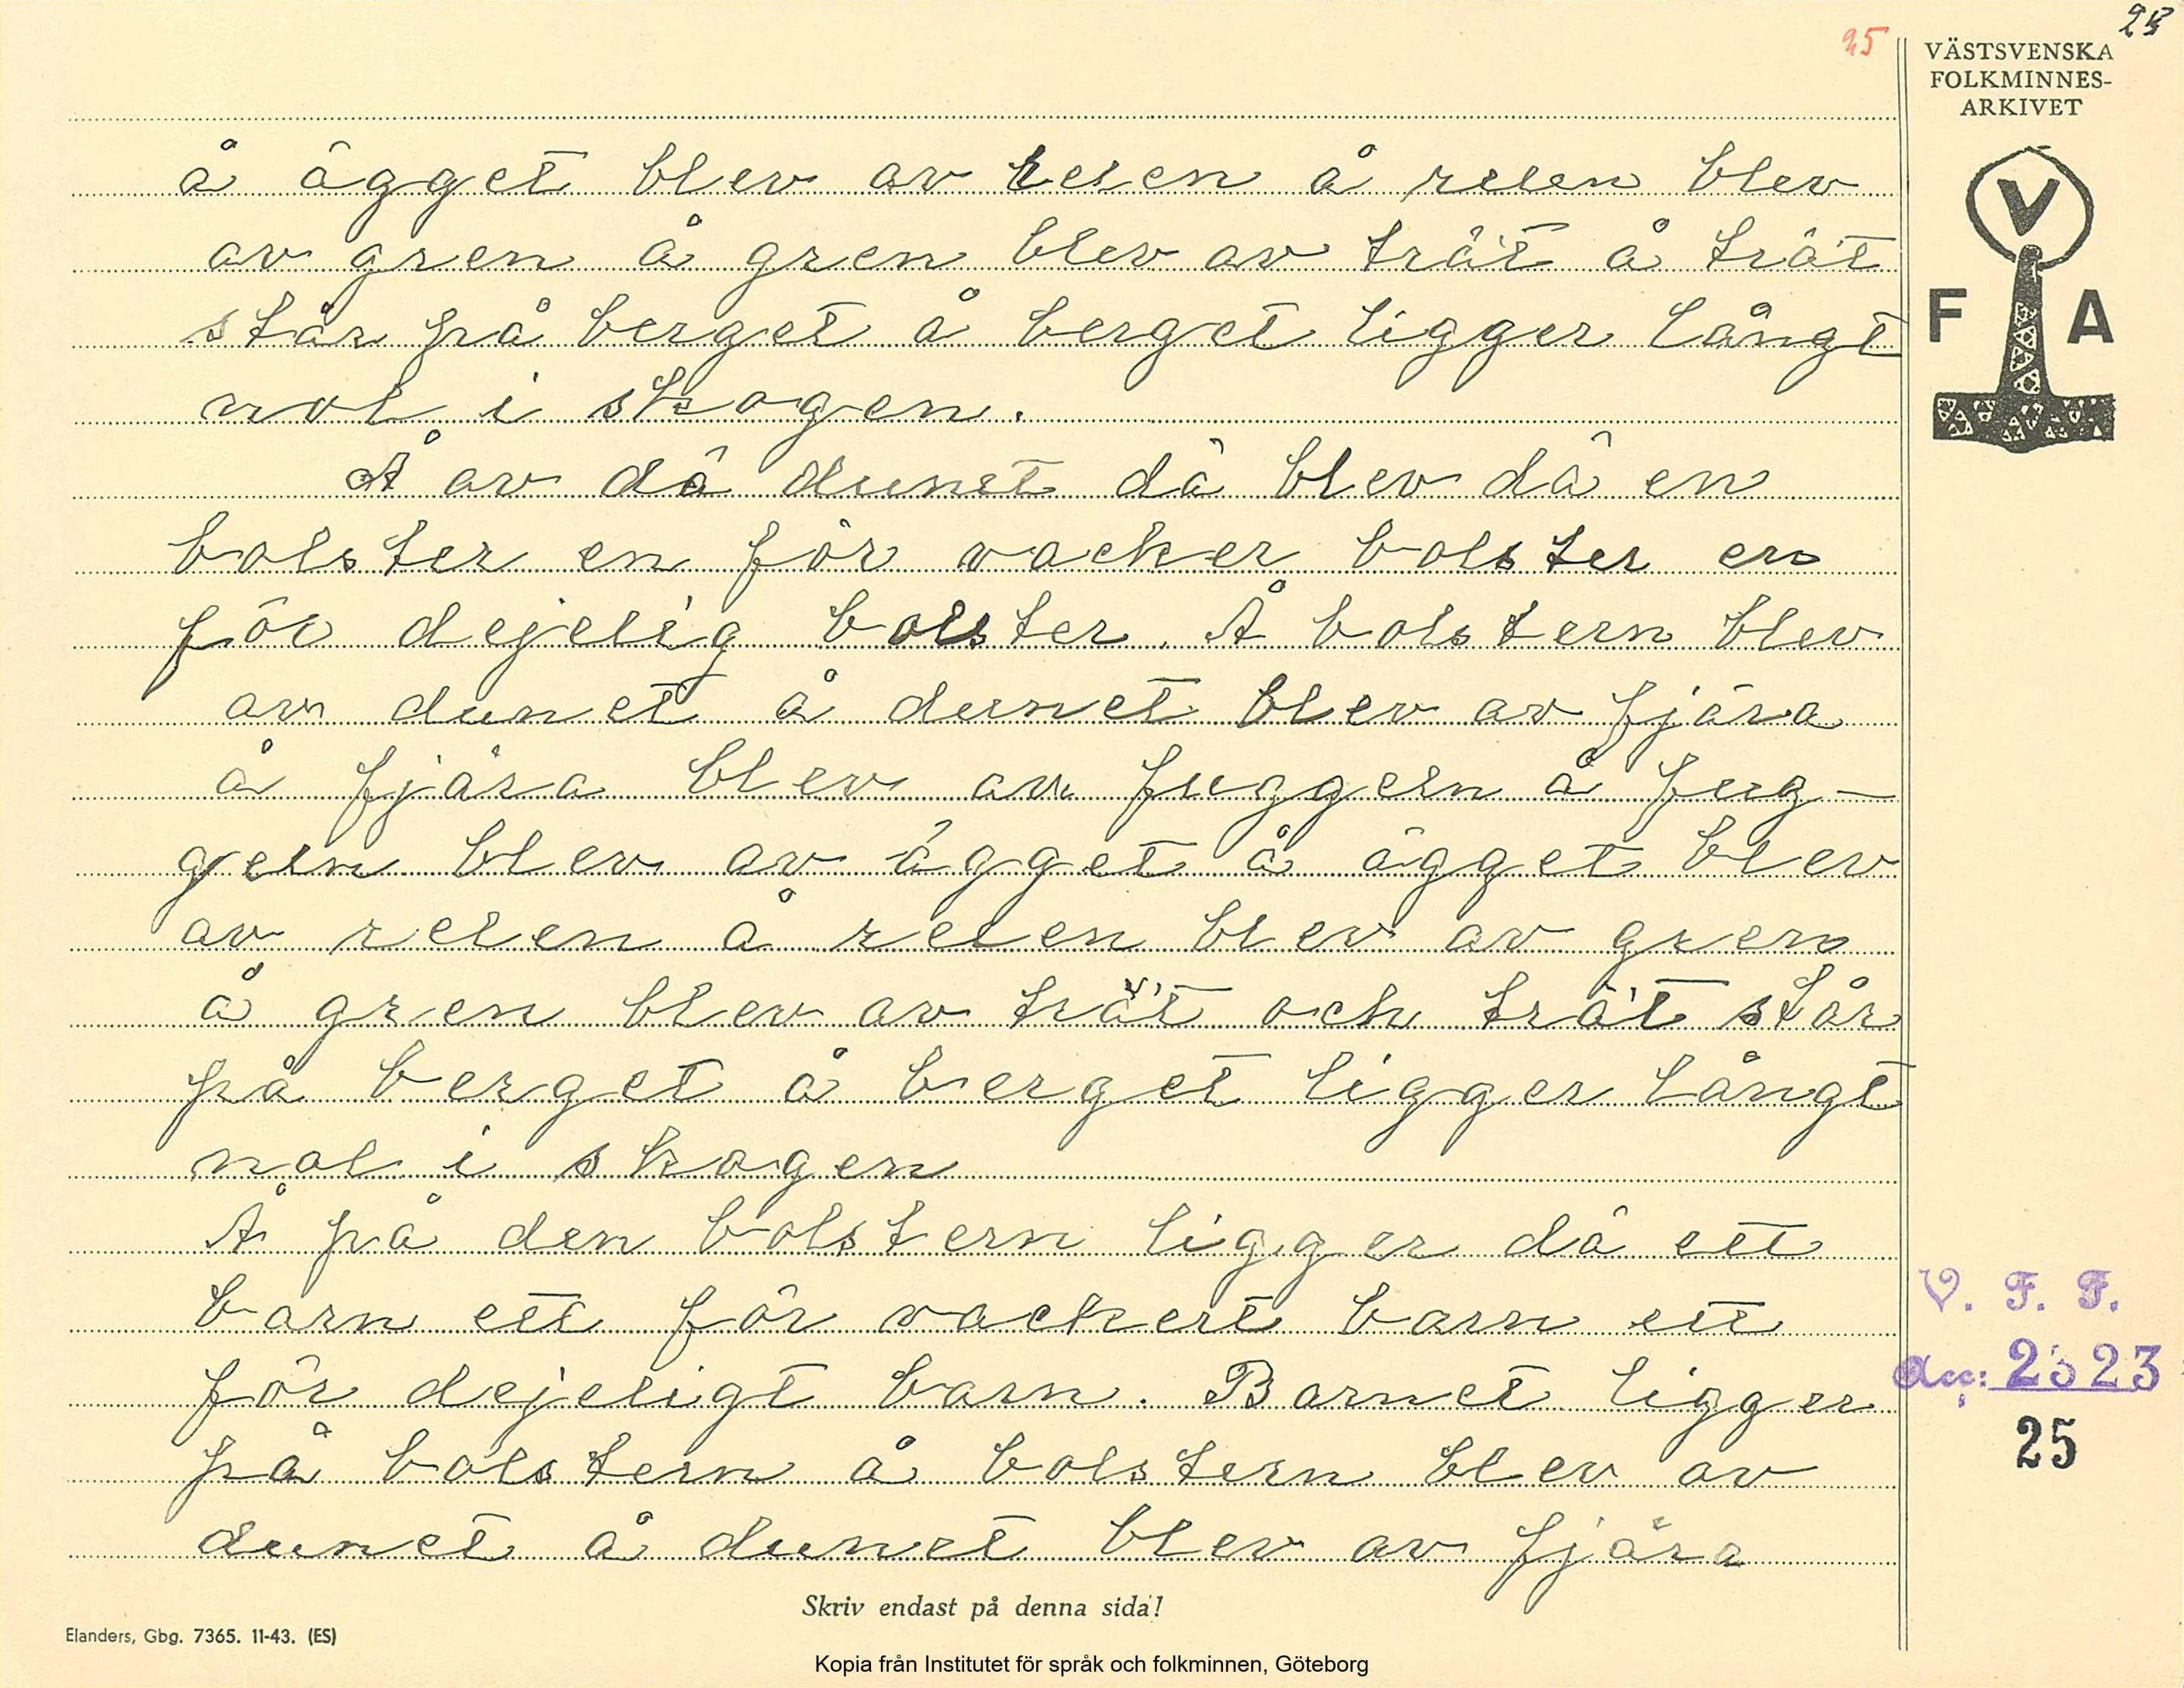 25
25
VÄSTSVENSKA
FOLKMINNES-
ARKIVET
V
F A
å ägget blev av reen å reen blev
av gren å gren blev av trät å trät
står på berget å berget ligger långt
nol i skogen.
Å av dä dunet dä blev dä en
bolster en för vacker bolster en
för dejelig bolster. Å bolstern blev
av dunet å dunet blev av fjära
å fjära blev av fuggeln å fug-
geln blev av ägget å ägget blev
av reen å reen blev av gren
å gren blev av trät och trät står
på berget å berget ligger långt
nol i skogen
Å på den bolstern ligger dä ett
barn ett för vackert barn ett
för dejeligt barn. Barnet ligger
på bolstern å bolstern blev av
dunet å dunet blev av fjära
V. F. F.
2323
25
Skriv endast på denna sida!
Elanders, Gbg. 7365. 11-43. (ES)
Kopia från Institutet för språk och folkminnen, Göteborg